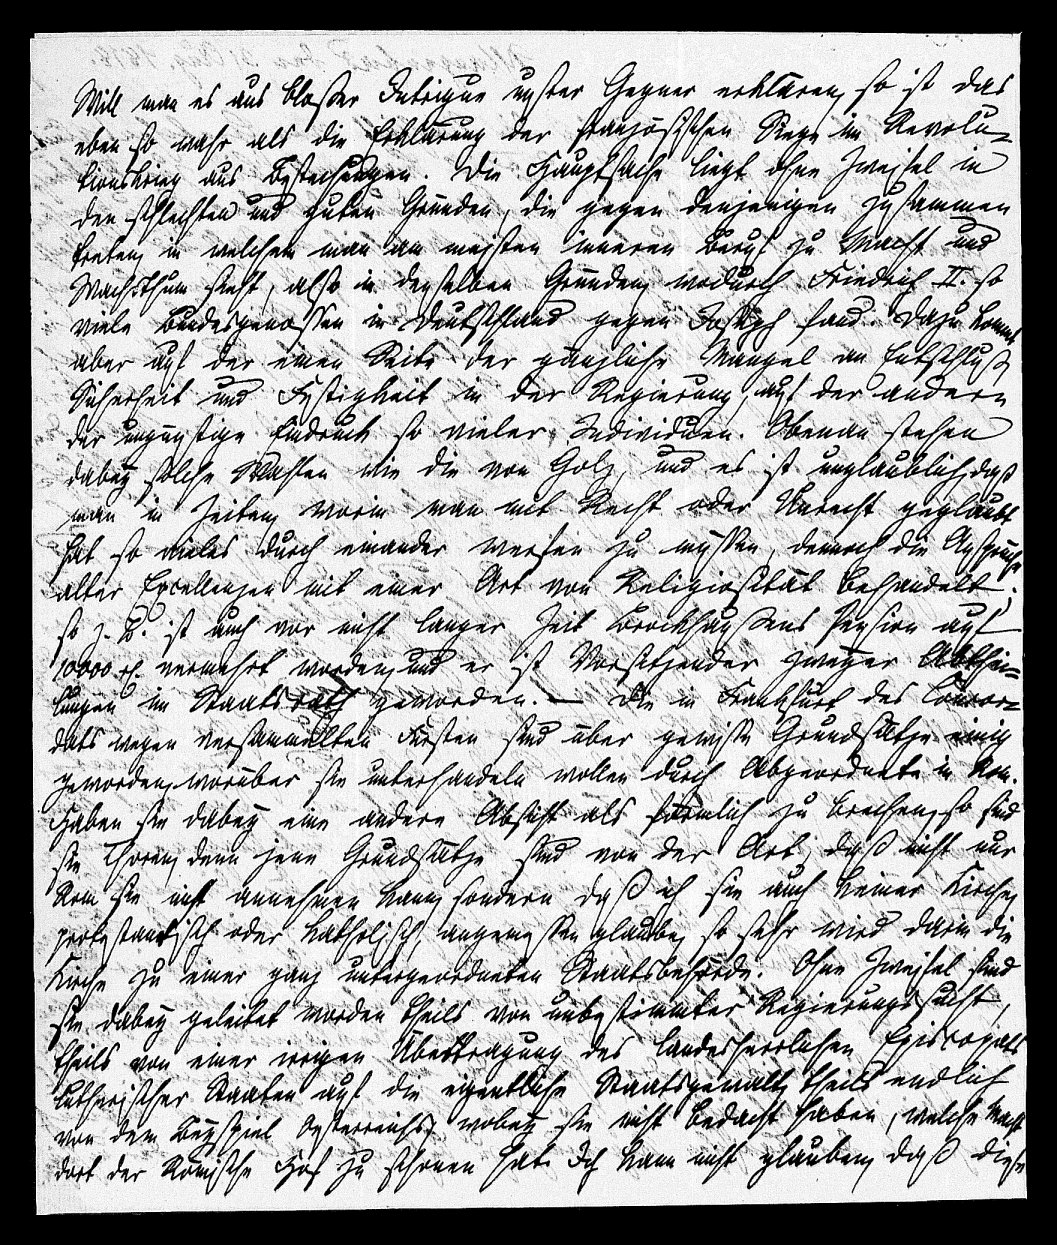 Will man es aus bloßer Intrigue unsrer Gegner erklären, so ist das
eben so wahr als die Erklärung der französischen Siege im Revolu-
tionskrieg aus Bestechungen. Die Hauptsache liegt ohne Zweifel in
den schlechten und guten Gründen, die gegen denjenigen zusammen
treten, in welchem man am meisten inneren Beruf zu Macht und
Wachsthum sieht, also in denselben Gründen, wodurch Friedrich II. so
viele Bundesgenossen in Deutschland gegen Joseph fand. Dazu kommt
aber auf der einen Seite der gänzliche Mangel an Entschluß,
Sicherheit und Festigkeit in der Regierung, auf der andern
der ungünstige Eindruck so vieler Individuen. Obenan stehen
dabey solche Wahlen wie die von Golz, und es ist unglaublich, daß
man in Zeiten, worin man mit Recht oder Unrecht geglaubt
hat so vieles durch einander werfen zu müssen, dennoch die Ansprüche
alter Excellenzen mit einer Art von Religiosität behandelt.
so z. B. ist auch vor nicht langer Zeit Brockhausens Pension auf
10000 rh. vermehrt worden, und er ist Vorsitzender zweyer Abthei-
lungen im Staatsrath geworden. — Die in Frankfurt des Concor-
dats wegen versammelten Fürsten sind über gewisse Grundsätze einig
geworden, worüber sie unterhandeln wollen durch Abgeordnete in Rom.
Haben sie dabey eine andere Absicht als förmlich zu brechen, so sind
sie Thoren, denn jene Grundsätze sind von der Art, daß nicht nur
Rom sie nicht annehmen kann, sondern daß ich sie auch keiner Kirche,
protestantisch oder katholisch, angemessen glaube, so sehr wird darin die
Kirche zu einer ganz untergeordneten Staatsbehörde. Ohne Zweifel sind
sie dabey geleitet worden theils von unbestimmter Regierungssucht,
theils von einer irrigen Übertragung des landesherrlichen Episcopats
lutherischer Staaten auf die eigentliche Staatsgewalt, theils endlich
von dem Beyspiel Oesterreichs, wobey sie nicht bedacht haben, welche Macht
dort der Römische Hof zu schonen hat. Ich kann nicht glauben, daß diese